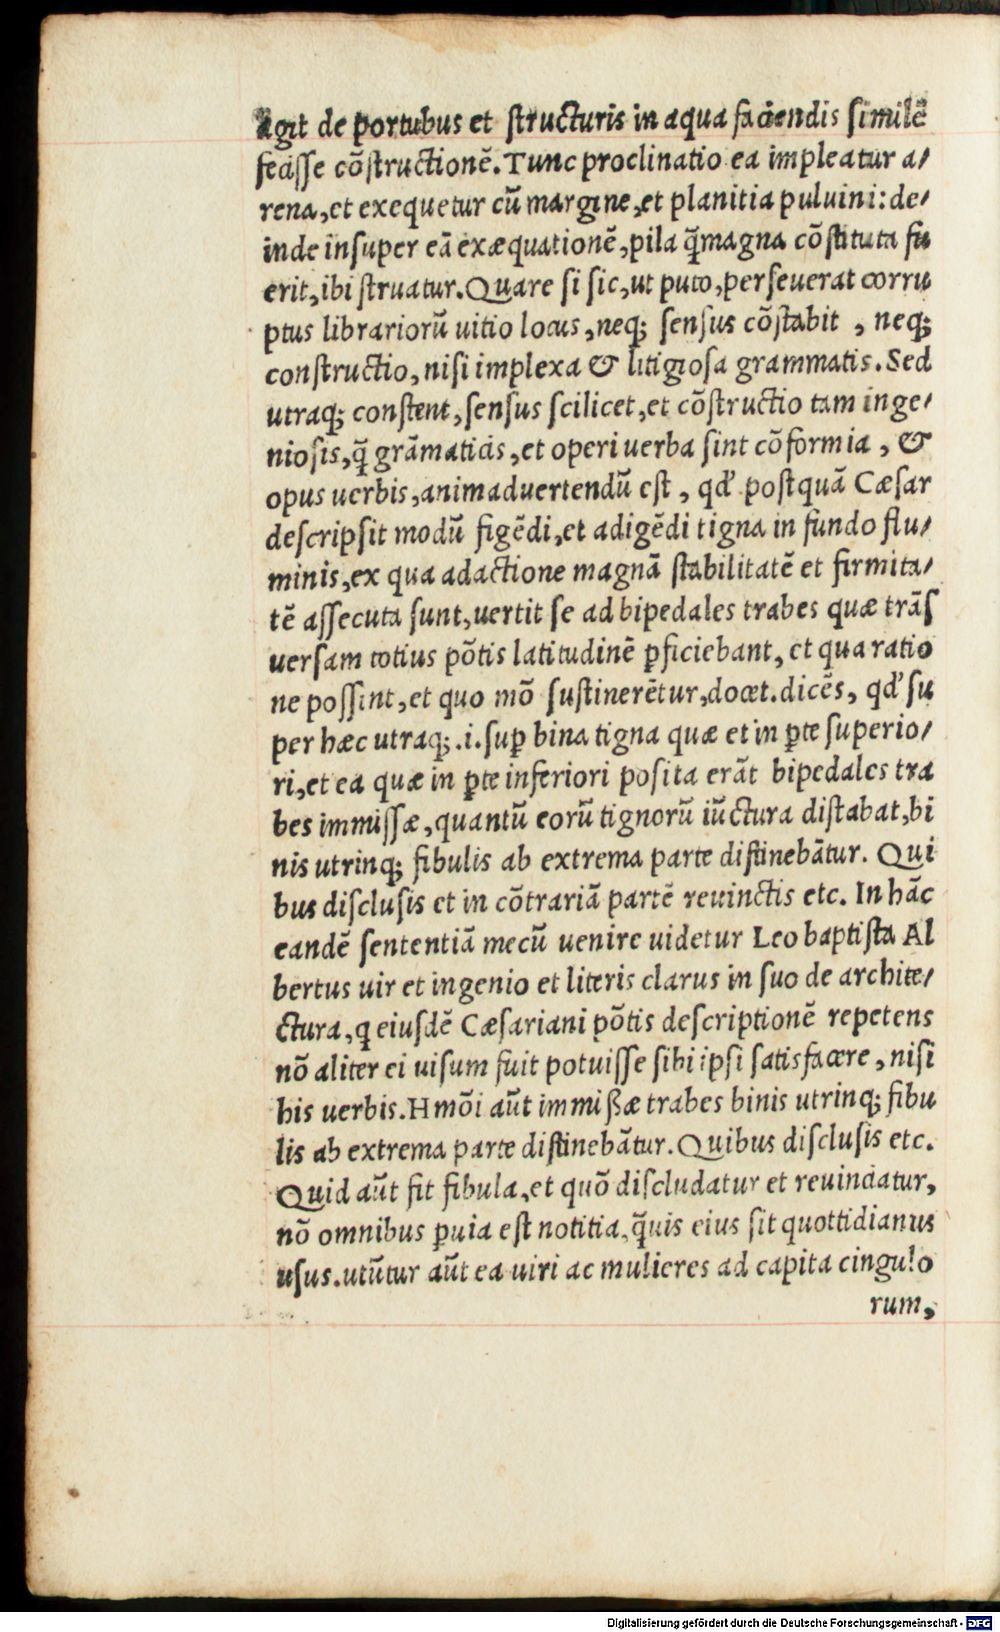 agit de portubus et ſtructuris in aqua faciendis ſimilẽ
feciſſe cõſtructionẽ. Tunc proclinatio ea impleatur a/
rena, et exequetur cũ margine, et planitia puluini: de/
inde inſuper eã exæquationẽ, pila q̃magna cõſtituta fu
erit, ibi ſtruatur. Quare ſi ſic, ut puto, perſeuerat corru
ptus librariorũ uitio locus, neq; ſenſus cõſtabit , neq;
conſtructio, niſi implexa & litigioſa grammatis. Sed
utraq; conſtent, ſenſus ſcilicet, et cõſtructio tam inge/
nioſis, q̃ grãmaticis, et operi uerba ſint cõformia , &
opus uerbis, animaduertendũ eſt , qď poſtquã Cæſar
deſcripſit modũ figẽdi, et adigẽdi tigna in fundo flu/
minis, ex qua adactione magnã ſtabilitatẽ et firmita/
tẽ aſſecuta ſunt, uertit ſe ad bipedales trabes quæ trãſ
uerſam totius põtis latitudinẽ ꝑficiebant, et qua ratio
ne poſſint, et quo mõ ſuſtinerẽtur, docet. dicẽs, qď ſu
per hæc utraq; .i. ſuꝑ bina tigna quæ et in ꝑte ſuperio/
ri, et ea quæ in ꝑte inferiori poſita erãt bipedales tra
bes immiſſæ, quantũ eorũ tignorũ iũctura diſtabat, bi
nis utrinq; fibulis ab extrema parte diſtinebãtur. Qui
bus diſcluſis et in cõtrariã partẽ reuinctis etc. In hãc
eandẽ ſententiã mecũ uenire uidetur Leo baptiſta Al
bertus uir et ingenio et literis clarus in ſuo de archite/
ctura, q eiuſdẽ Cæſariani põtis deſcriptionẽ repetens
nõ aliter ei uiſum fuit potuiſſe ſibi ipſi ſatisfacere, niſi
his uerbis. Hmõi aũt immißæ trabes binis utrinq; fibu
lis ab extrema parte diſtinebãtur. Quibus diſcluſis etc.
Quid aũt ſit fibula, et quõ diſcludatur et reuinciatur,
nõ omnibus ꝑuia eſt notitia, q̃uis eius ſit quottidianus
uſus. utũtur aũt ea uiri ac mulieres ad capita cingulo
rum,
Digitalisierung gefördert durch die Deutsche Forschungsgemeinschaft - DFG